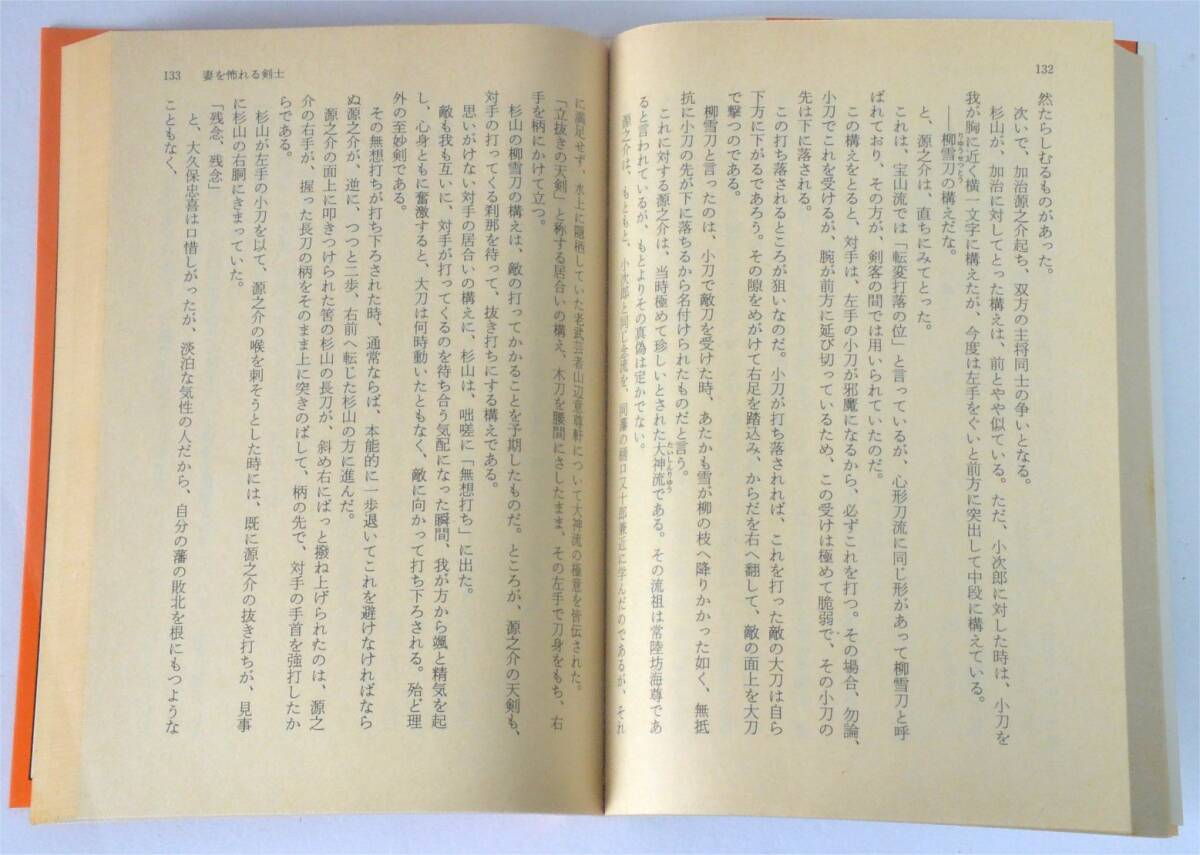 132
然たらしむるものがあった。
次いで、加治源之介起ち、双方の主将同士の争いとなる。
杉山が、加治に対してとった構えは、前とやや似ている。ただ、小次郎に対した時は、小刀を
我が胸に近く横一文字に構えたが、今度は左手をぐいと前方に突出して中段に構えている。
――柳雪刀の構えだな。
りゅうせつとう
と、源之介は、直ちにみてとった。
これは、宝山流では「転変打落の位」と言っているが、心形刀流に同じ形があって柳雪刀と呼
ばれており、その方が、剣客の間では用いられていたのだ。
この構えをとると、対手は、左手の小刀が邪魔になるから、必ずこれを打つ。その場合、勿論、
小刀でこれを受けるが、腕が前方に延び切っているため、この受けは極めて脆弱で、その小刀の
先は下に落される。
この打ち落されるところが狙いなのだ。小刀が打ち落されれば、これを打った敵の大刀は自ら
下方に下がるであろう。その隙をめがけて右足を踏込み、からだを右へ翻して、敵の面上を大刀
で撃つのである。
柳雪刀と言ったのは、小刀で敵刀を受けた時、あたかも雪が柳の枝へ降りかかった如く、無抵
抗に小刀の先が下に落ちるから名付けられたものだと言う。
これに対する源之介は、当時極めて珍しいとされた大神流である。その流祖は常陸坊海尊であ
たいしんりゅう
ると言われているが、もとよりその真偽は定かでない。
源之介は、もともと、小次郎と同じ念流を、同藩の樋口又十郎兼近に学んだのであるが、それ
133 妻を怖れる剣士
に満足せず、水上に隠栖していた老武芸者山辺意尊軒について大神流の極意を皆伝された。
「立抜きの天剣」と称する居合いの構え、木刀を腰間にさしたまま、その左手で刀身をもち、右
手を柄にかけて立つ。
杉山の柳雪刀の構えは、敵の打ってかかることを予期したものだ。ところが、源之介の天剣も、
対手の打ってくる刹那を待って、抜き打ちにする構えである。
思いがけない対手の居合いの構えに、杉山は、咄嗟に「無想打ち」に出た。
敵も我も互いに、対手が打ってくるのを待ち合う気配になった瞬間、我が方から颯と精気を起
し、心身ともに奮激すると、大刀は何時動いたともなく、敵に向かって打ち下ろされる。殆ど理
外の至妙剣である。
その無想打ちが打ち下ろされた時、通常ならば、本能的に一歩退いてこれを避けなければなら
ぬ源之介が、逆に、つつと二歩、右前へ転じた杉山の方に進んだ。
源之介の面上に叩きつけられた筈の杉山の長刀が、斜め右にぱっと撥ね上げられたのは、源之
介の右手が、握った長刀の柄をそのまま上に突きのばして、柄の先で、対手の手首を強打したか
らである。
杉山が左手の小刀を以て、源之介の喉を刺そうとした時には、既に源之介の抜き打ちが、見事
に杉山の右胴にきまっていた。
「残念、残念」
と、大久保忠喜は口惜しがったが、淡泊な気性の人だから、自分の藩の敗北を根にもつような
こともなく、